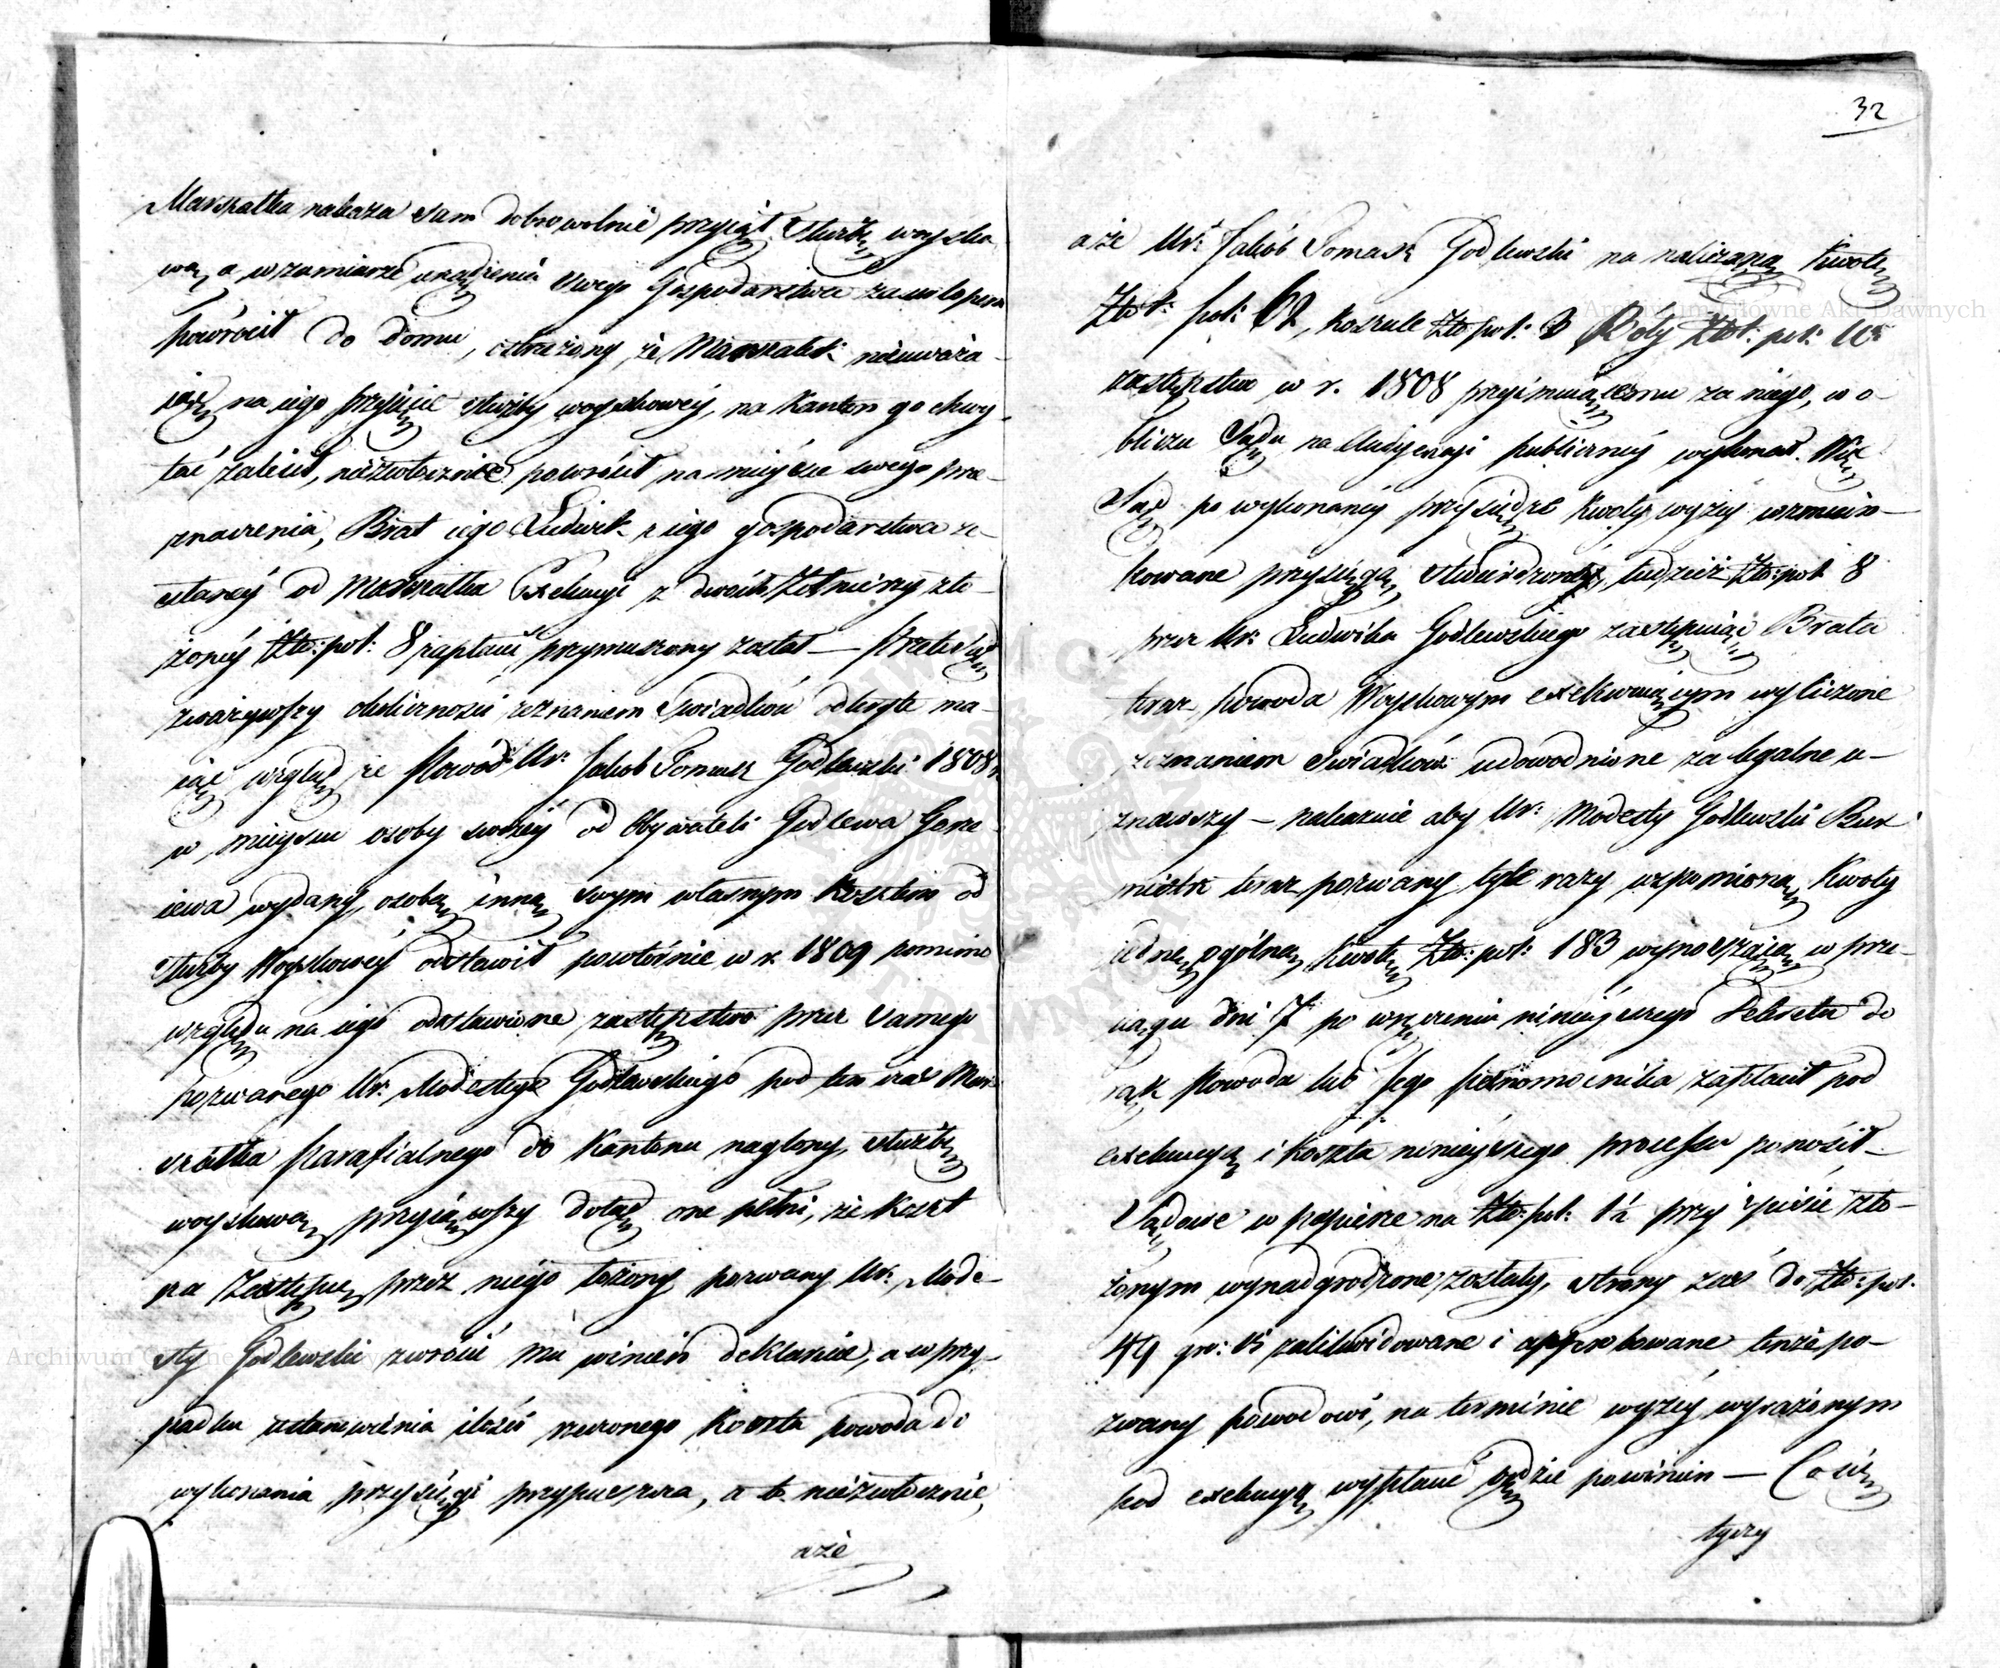 Marszałka nakaza sam dobrowolnie przyiął służbę woysko
wą, a w zamiarze urządzenia swego Gospodarstwa za urlopem
powrócił do domu, ostrzeżony że Marszałek nieuważa-
iąc na iego przyięcie służby woyskowéy, na Kanton go chwy-
tać zalecił, niezwłocznie powrócił na mieysce swego prze-
znaczenia, Brat iego Ludwik z iego gospodarstwa ze-
słaney od Marszałka Exekucyi z dwóch Żołnierzy zło-
żoney Złt: pol: 8 zapłacić przymuszony został — Przeto Sąd
zważywszy okoliczności zeznaniem Swiadków odkryte ma-
iąc wzgląd że Powód Ur: Jakób Tomasz Godlewski 1808 r.
w mieyscu osoby swoiéy od Obywateli Godlewa Gorze-
iewa wydany, osobę inną swym własnym Kosztem od
służby Woyskowéy odstawił powtórnie w r. 1809 pomimo
względu na iego odstawione zastępstwo przez samego
pozwanego Ur: Modestego Godlewskiego pod ten czas Mar-
szałka Parafialnego do Kantonu naglony, służbę
woyskową przyiąwszy dotąd one pełni, że Koszt
na Zastępcę przez niego łożony pozwany Ur: Mode-
sty Godlewski zwrócić mu winien deklaruie, a w przy-
padku ustanowienia ilości rzeczonego Kosztu powoda do
wykonania przysięgi przypuszcza, a to niezwłocznie,
aże
32
aże Ur: Jakób Tomasz Godlewski na naliczaną Kwotę
Złot: pol: 62, koszule Złt: pol: 3 Boty Złot: pol: 10
zastępstwo w r. 1808 przyimuiącemu za niego, w o-
bliczu Sądu na Audyencyi publicznéy wykonał. Więc
Sąd po wykonanéy przysiędze Kwoty wyżéy wzmian-
kowane przysięgą stwierdzone, tudzież Złt: pol: 8
przez Ur: Ludwika Godlewskiego zastępuiąc Brata
teraz Powoda Woyskowym exekwuiącym wyliczone
zeznaniem Swiadków udowodnione za legalne u-
znawszy — nakazuie aby Ur: Modesty Godlewski Bur-
mistrz teraz pozwany tyle razy wspomnioną Kwoty
iedną ogólną Kwotę Złt: pol: 183 wynoszącą w prze-
ciągu dni 7 po wręczeniu ninieyszego Dekretu do
rąk Powoda lub Jego Pełnomocnika zapłacił pod
exekucyą i Koszta ninieyszego processu ponosił —
Sądowe w papierze na Złt: pol: 12 przy spisie zło-
żonym wynadgrodzone zostały, strony zaś do Złt: pol:
49 gro: 15 zalikwidowane i approbowane tenże po-
zwany powodowi, na terminie wyżéy wyrażonym
pod exekucyą wypłacić będzie powinien — Co się
tyczy